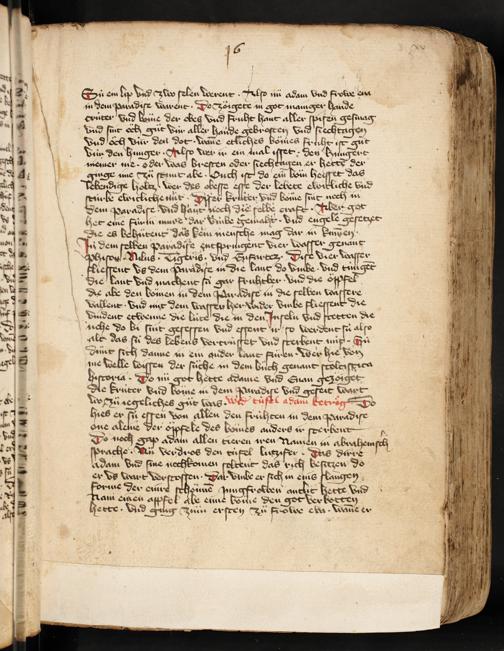 16
Sü ein lip vnd zwo selen werent · Also nü adam vnd frowe eua
in dem paradise warent · Do zöigete in got maniger hande
crüter vnd böme der obes vnd früht hant aller spisen genüag
vnd sint öch güt vür aller hande gebresten vnd siechtagen
vnd öch vür den dot · wane etliches bömes früht ist güt
vür den hunger · Also wer ir ein mal isset · den hungert
niemer me · oder was bresten oder siechtagen er hette der
ginge ime zü stunt abe · Ouch ist do ein böm heisset das
lebendige holtz · wer des obesse esse der lebete ewicliche vnd
stürbe ewicliche nüt · Diser krüter vnd böme sint noch in
dem paradise vnd hant noch die selbe craft · Aber got
het eine fürin mure dar vmbe gemaht · vnd engele gesetzet
die es behütent das kein mensche mag dar in kumen ·
In dem selben paradise entspringent vier wasser genant
phison · Nilus · Tigris · vnd Eufrates · Dise vier wasser
fliessent vs dem paradise in die lant do vmbe · vnd tunget
die lant vnd machent sü gar fruhtber · vnd die öpfel
die abe den bömen in dem paradise in die selben wassere
vallent · vnd mit dem wasser her wider vmbe fliessent die
vindent etwenne die lüte die in den Inseln vnd stetten die
noche do bi sint gesessen vnd essent ir · so werdent sü also
alt das sü des lebens vertrüsset vnd sterbent nüt · Sü
dünt sich danne in ein ander lant füren · Wer hie von
me welle wissen der süche in dem büch genant scolastica
historia · Do nü got hette adame vnd Euan gezöiget
die krüter vnd böme in dem paradise vnd geseit wart
wo zü iegeliches güt was · Wie tüfel adam betrög · Do
hies er sü essen von allen den frühten in dem paradise
one aleine der öpfele des bömes anders ir sterbent
Do noch gap adam allen tieren iren Namen in abrahemsch
sprache · Nü verdros den tüfel lutzifer · Das dirre
adam vnd sine nochkomen soltent das rich besitzen do
er vs wart verstossen · Dar vmbe er sich in eins slangen
forme der einre schönne jungfrowen antlit hette vnd
Nam einen appfel abe eime böme den got verbotten
hette · vnd ging züm ersten zü frowe eua · wane er